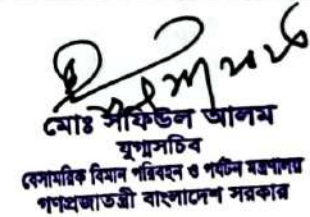 মোঃ সফিউল আলম
যুগ্মসচিব
বেসামরিক বিমান পরিবহন ও পর্যটন মন্ত্রণালয়
গণপ্রজাতন্ত্রী বাংলাদেশ সরকার